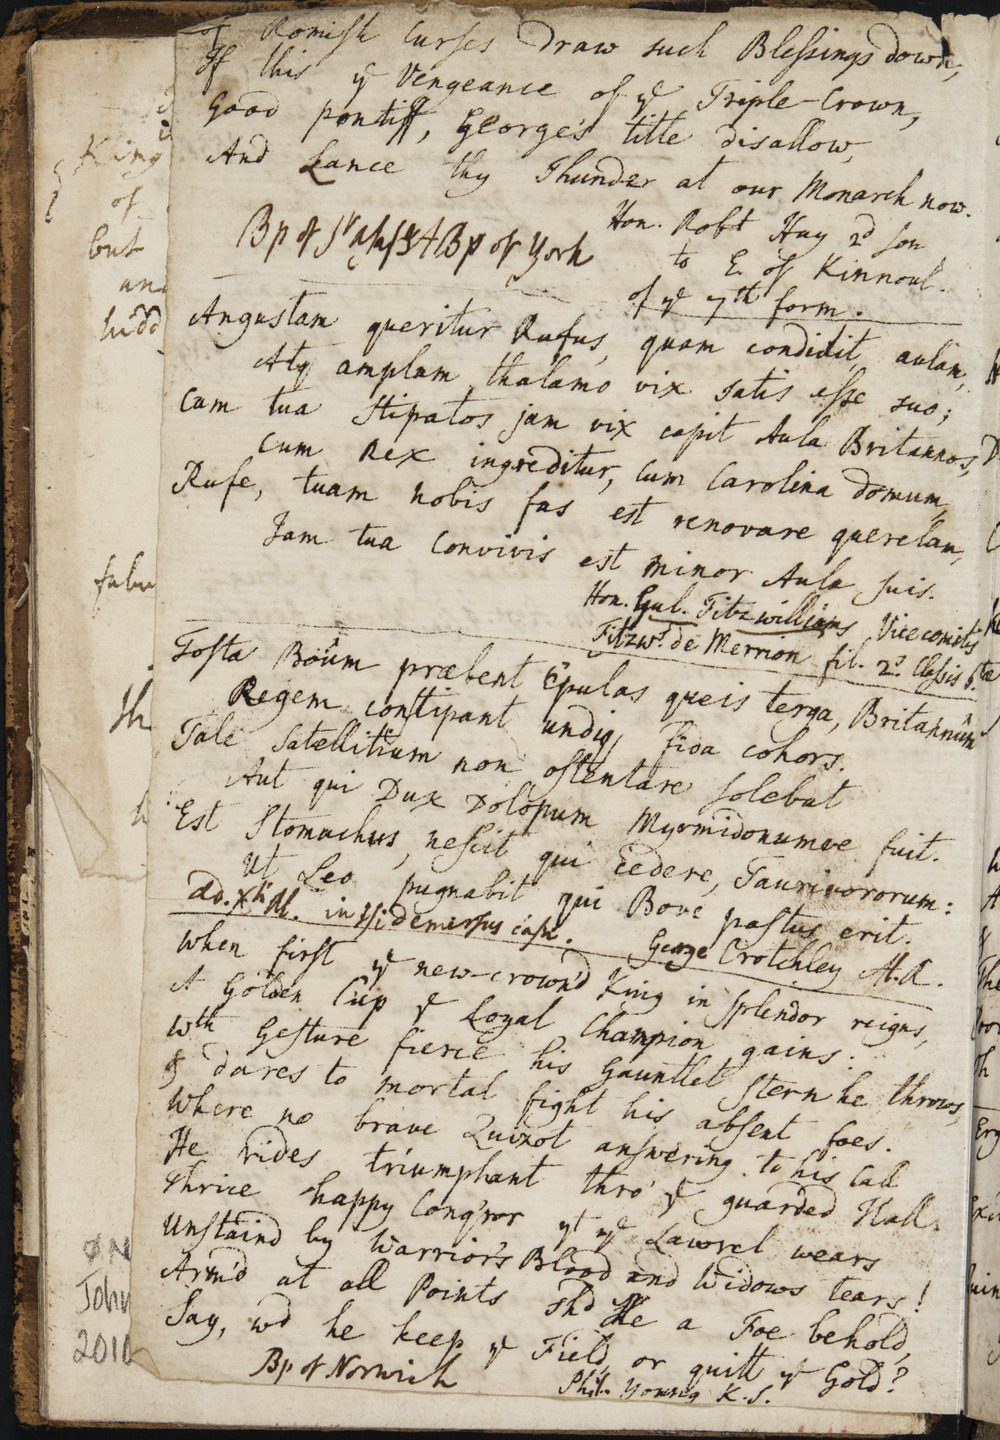 If Romish Curses Draw such Blessings down,
If this ye Vengeance of ye Triple-Crown,
Good pontiff, George's title disallow,
And Lance thy Thunder at our Monarch now.
Hon. Robt Hay 2d son
to E. of Kinnoul.
of ye 7th form.
Bp of St Asaph & ABp of York
Angustam queritur Rufus, quam condidit, aulam,
Atq amplam thalamo vix satis esse suo;
Cum tua stipatos jam vix capit Aula Britannos,
Cum Rex ingreditur, Cum Carolina domum,
Rufe, tuam nobis fas est renovare querelam,
Jam tua Convivis est minor Aula suis.
Hon. Gul. Fitzwilliams Vicecomitis
Fitzws. de Merrion fil. 2s. Classis 6tae
Tosta Boûm præbent Epulas queis terga, Britannûm
Regem constipant undiq fida cohors.
Tale Satellitium non ostentare solebat
Aut qui Dux Dolopum Myrmidonumve fuit.
Est Stomachus, nescit qui cedere, Taurivororum:
Ut Leo pugnabit qui Bove pastus erit.
George Crotchley A.R.
When first ye new-crown'd King in splendor reigns,
A Golden Cup ye Loyal Champion gains:
Wth Gesture fierce his Gauntlet stern he throws,
& dares to mortal fight his absent foes.
Where no brave Quixot answering to his Call
He rides triumphant thro' ye guarded Hall.
Thrice happy Conq'ror yt ye Lawrel wears
Unstaind by Warrior's Blood and Widows tears!
Arm'd at all Points shd He a Foe behold,
Say, wd he keep ye Field, or quitt ye Gold?
Bp of Norwich
Phil. Young K.S.
King
of
but
and
John
2010